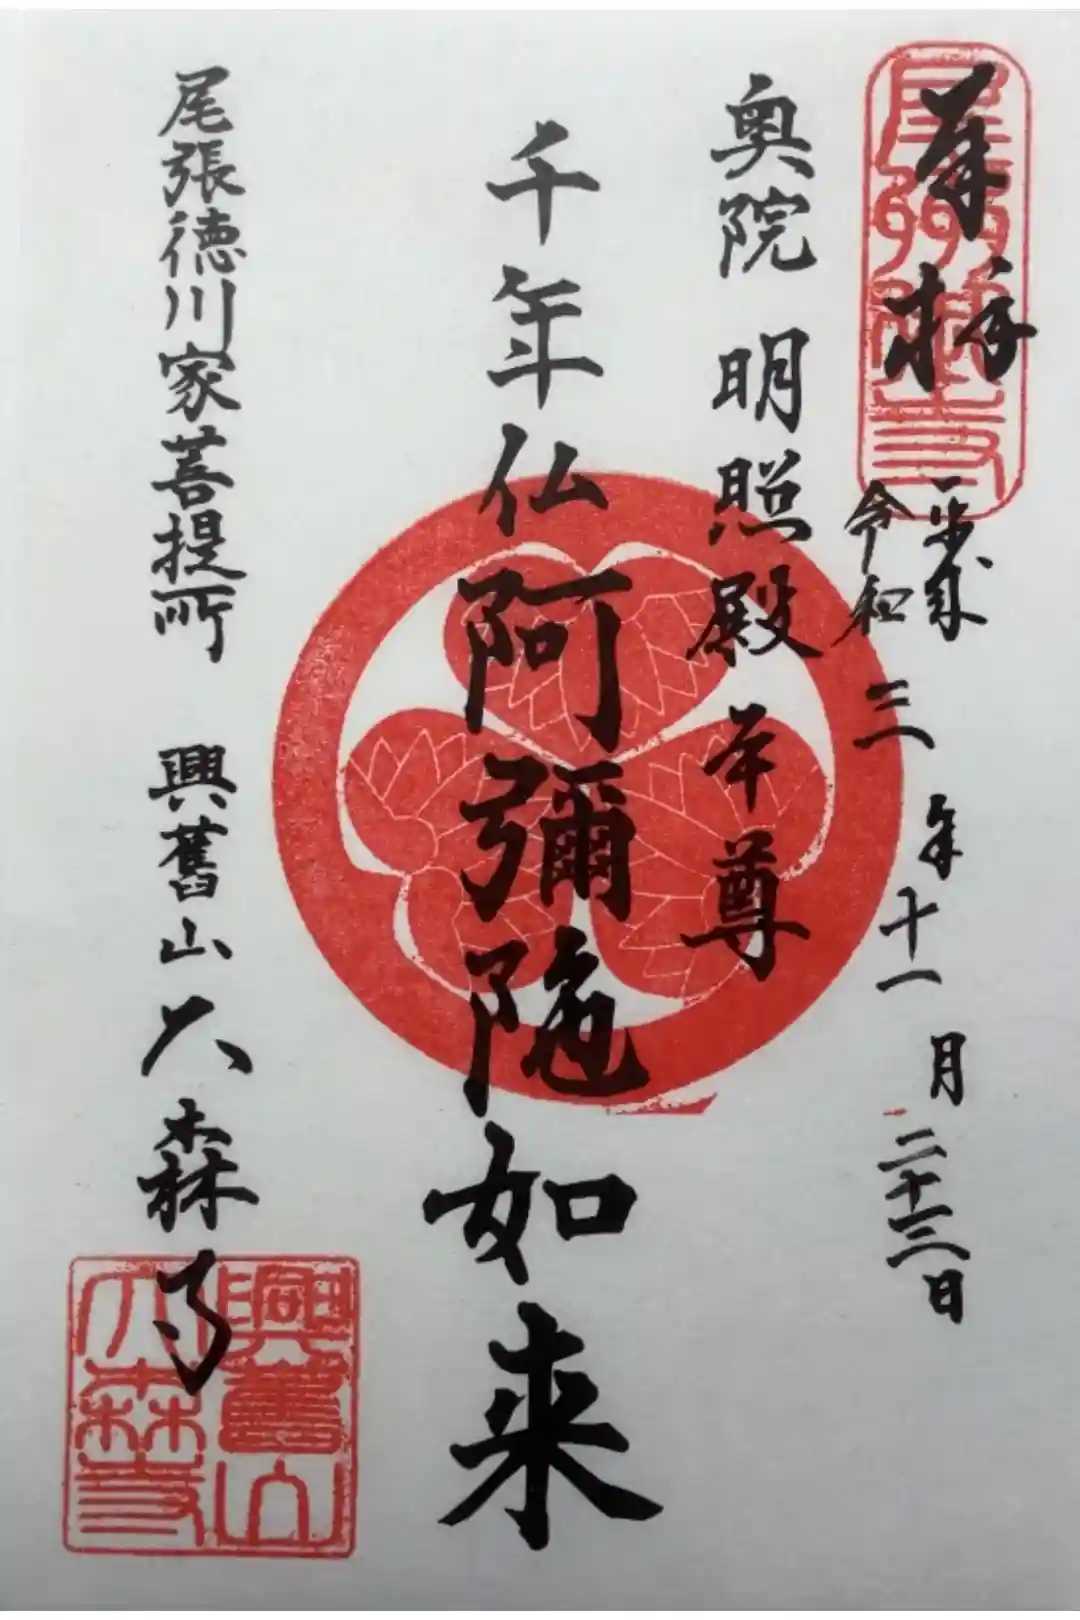 奉拝
令和三年十一月二十三日
奥院 明照殿 本尊
千年仏阿彌陀如来
尾張徳川家菩提所 興舊山大森寺
興舊山
大森寺